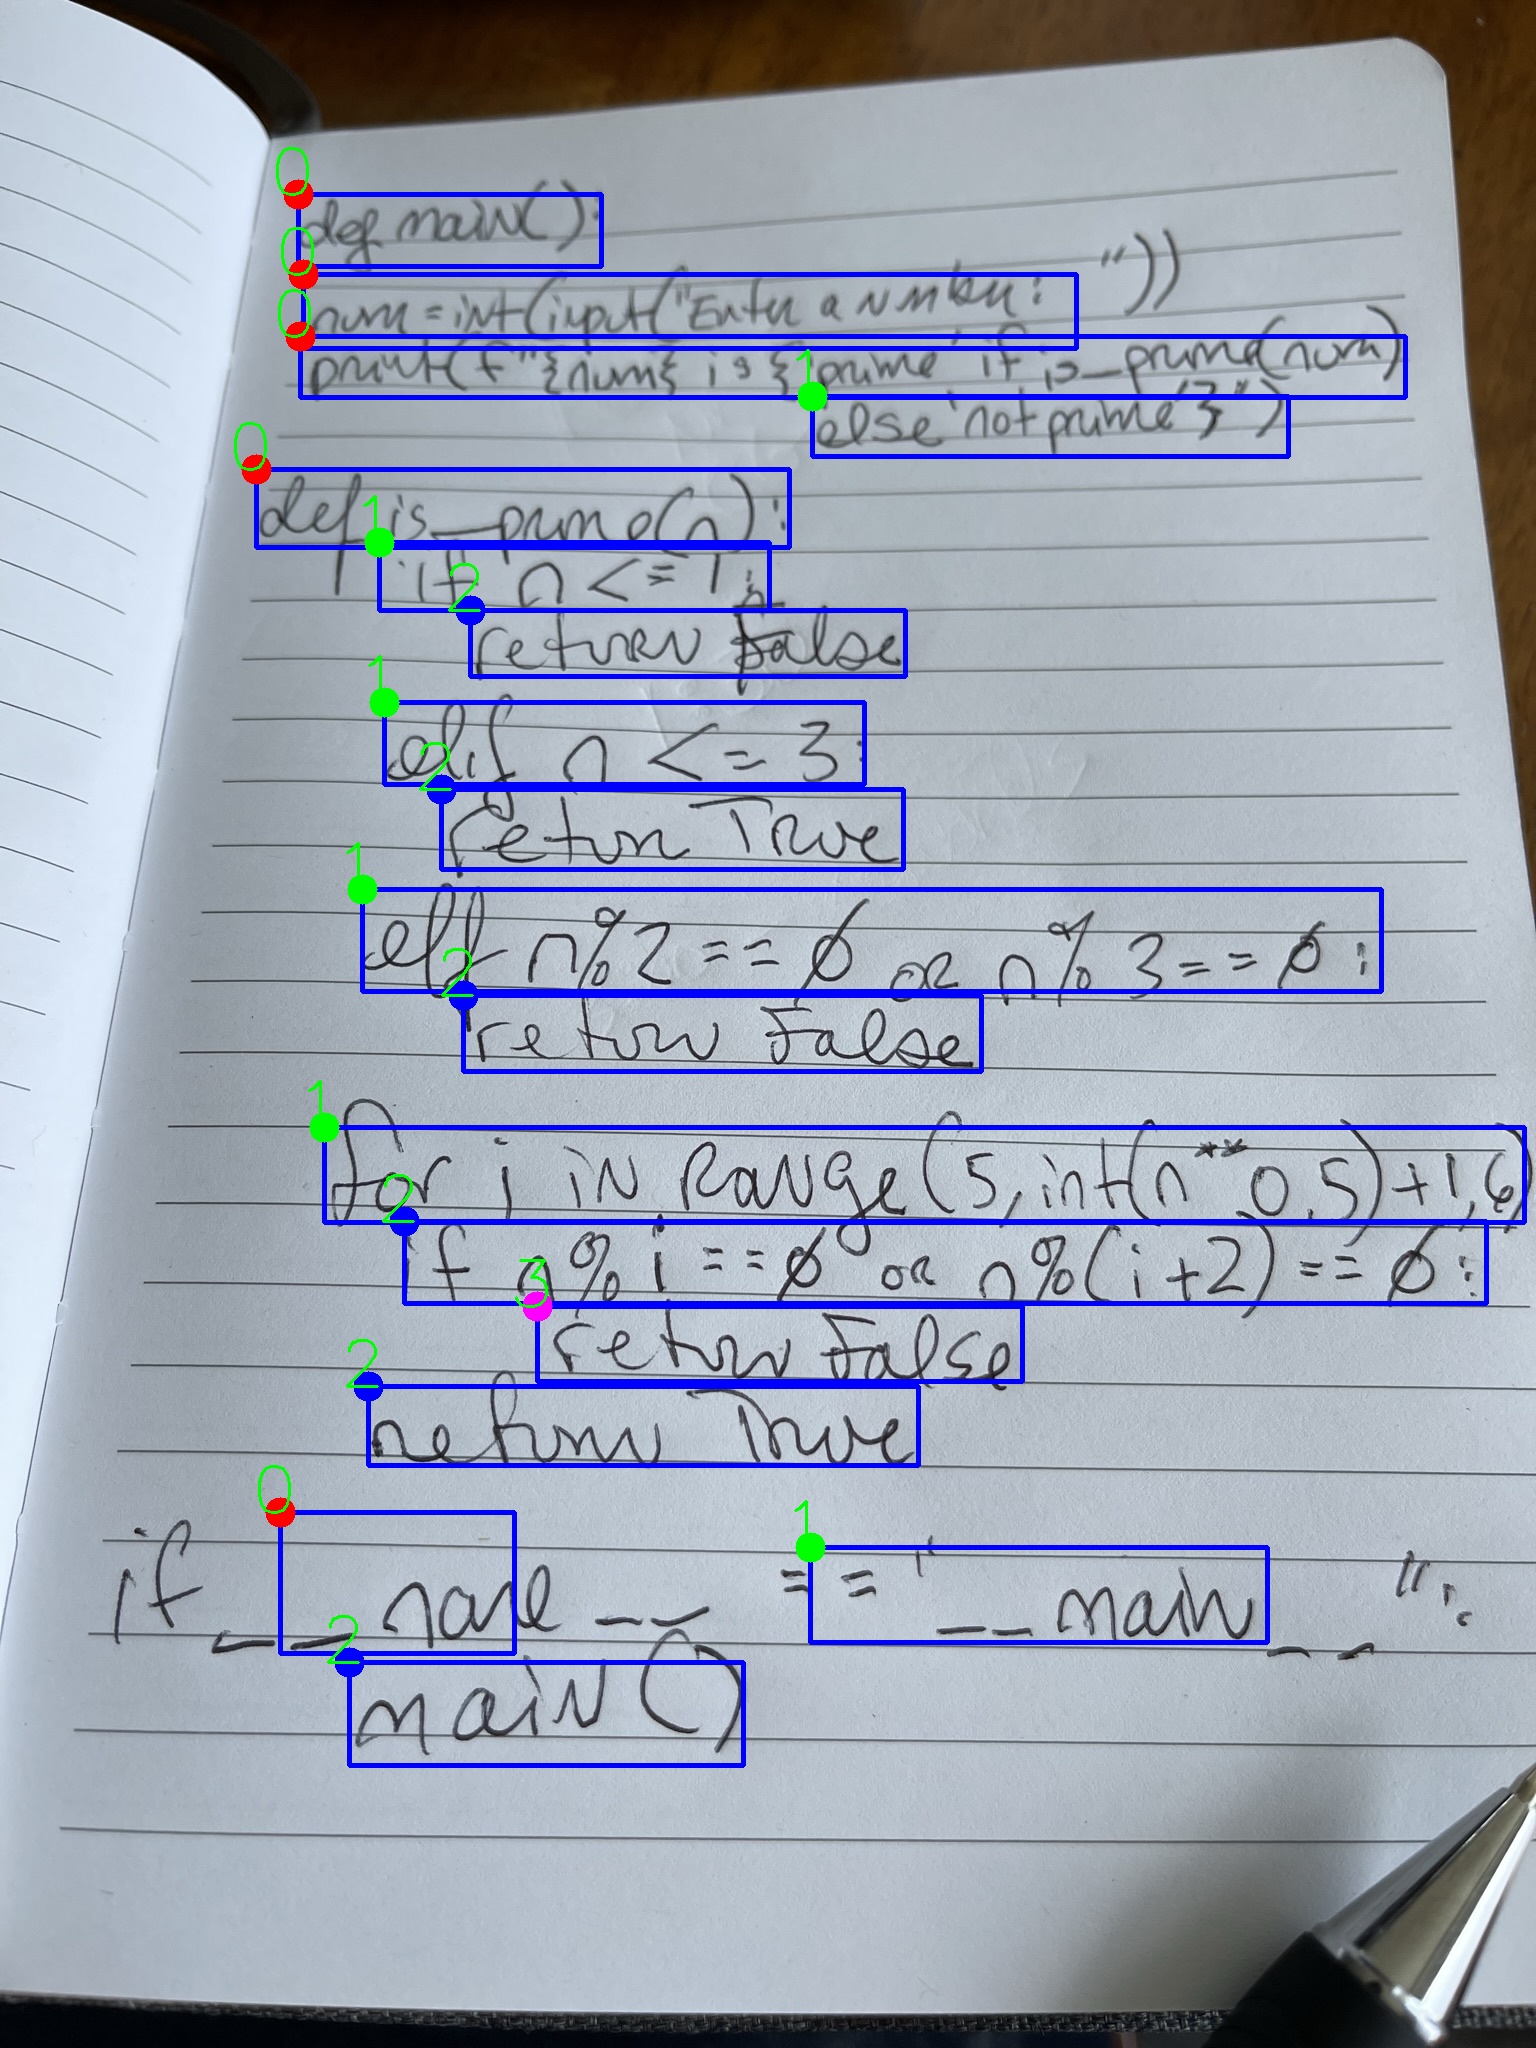 def main():
num = int(input("Enter a number: "))
print(f"{num} is {'prime' if is_prime(num)
else 'not prime'}")
def is_prime(n):
if n <= 1:
return False
elif n <= 3:
return True
elif n%2 == 0 or n% 3 == 0:
return False
for i in range(5, int(n**0.5)+1,6)
if n% i == 0 or n%(i+2) == 0:
return False
return True
if __name__ == "__main__":
main()